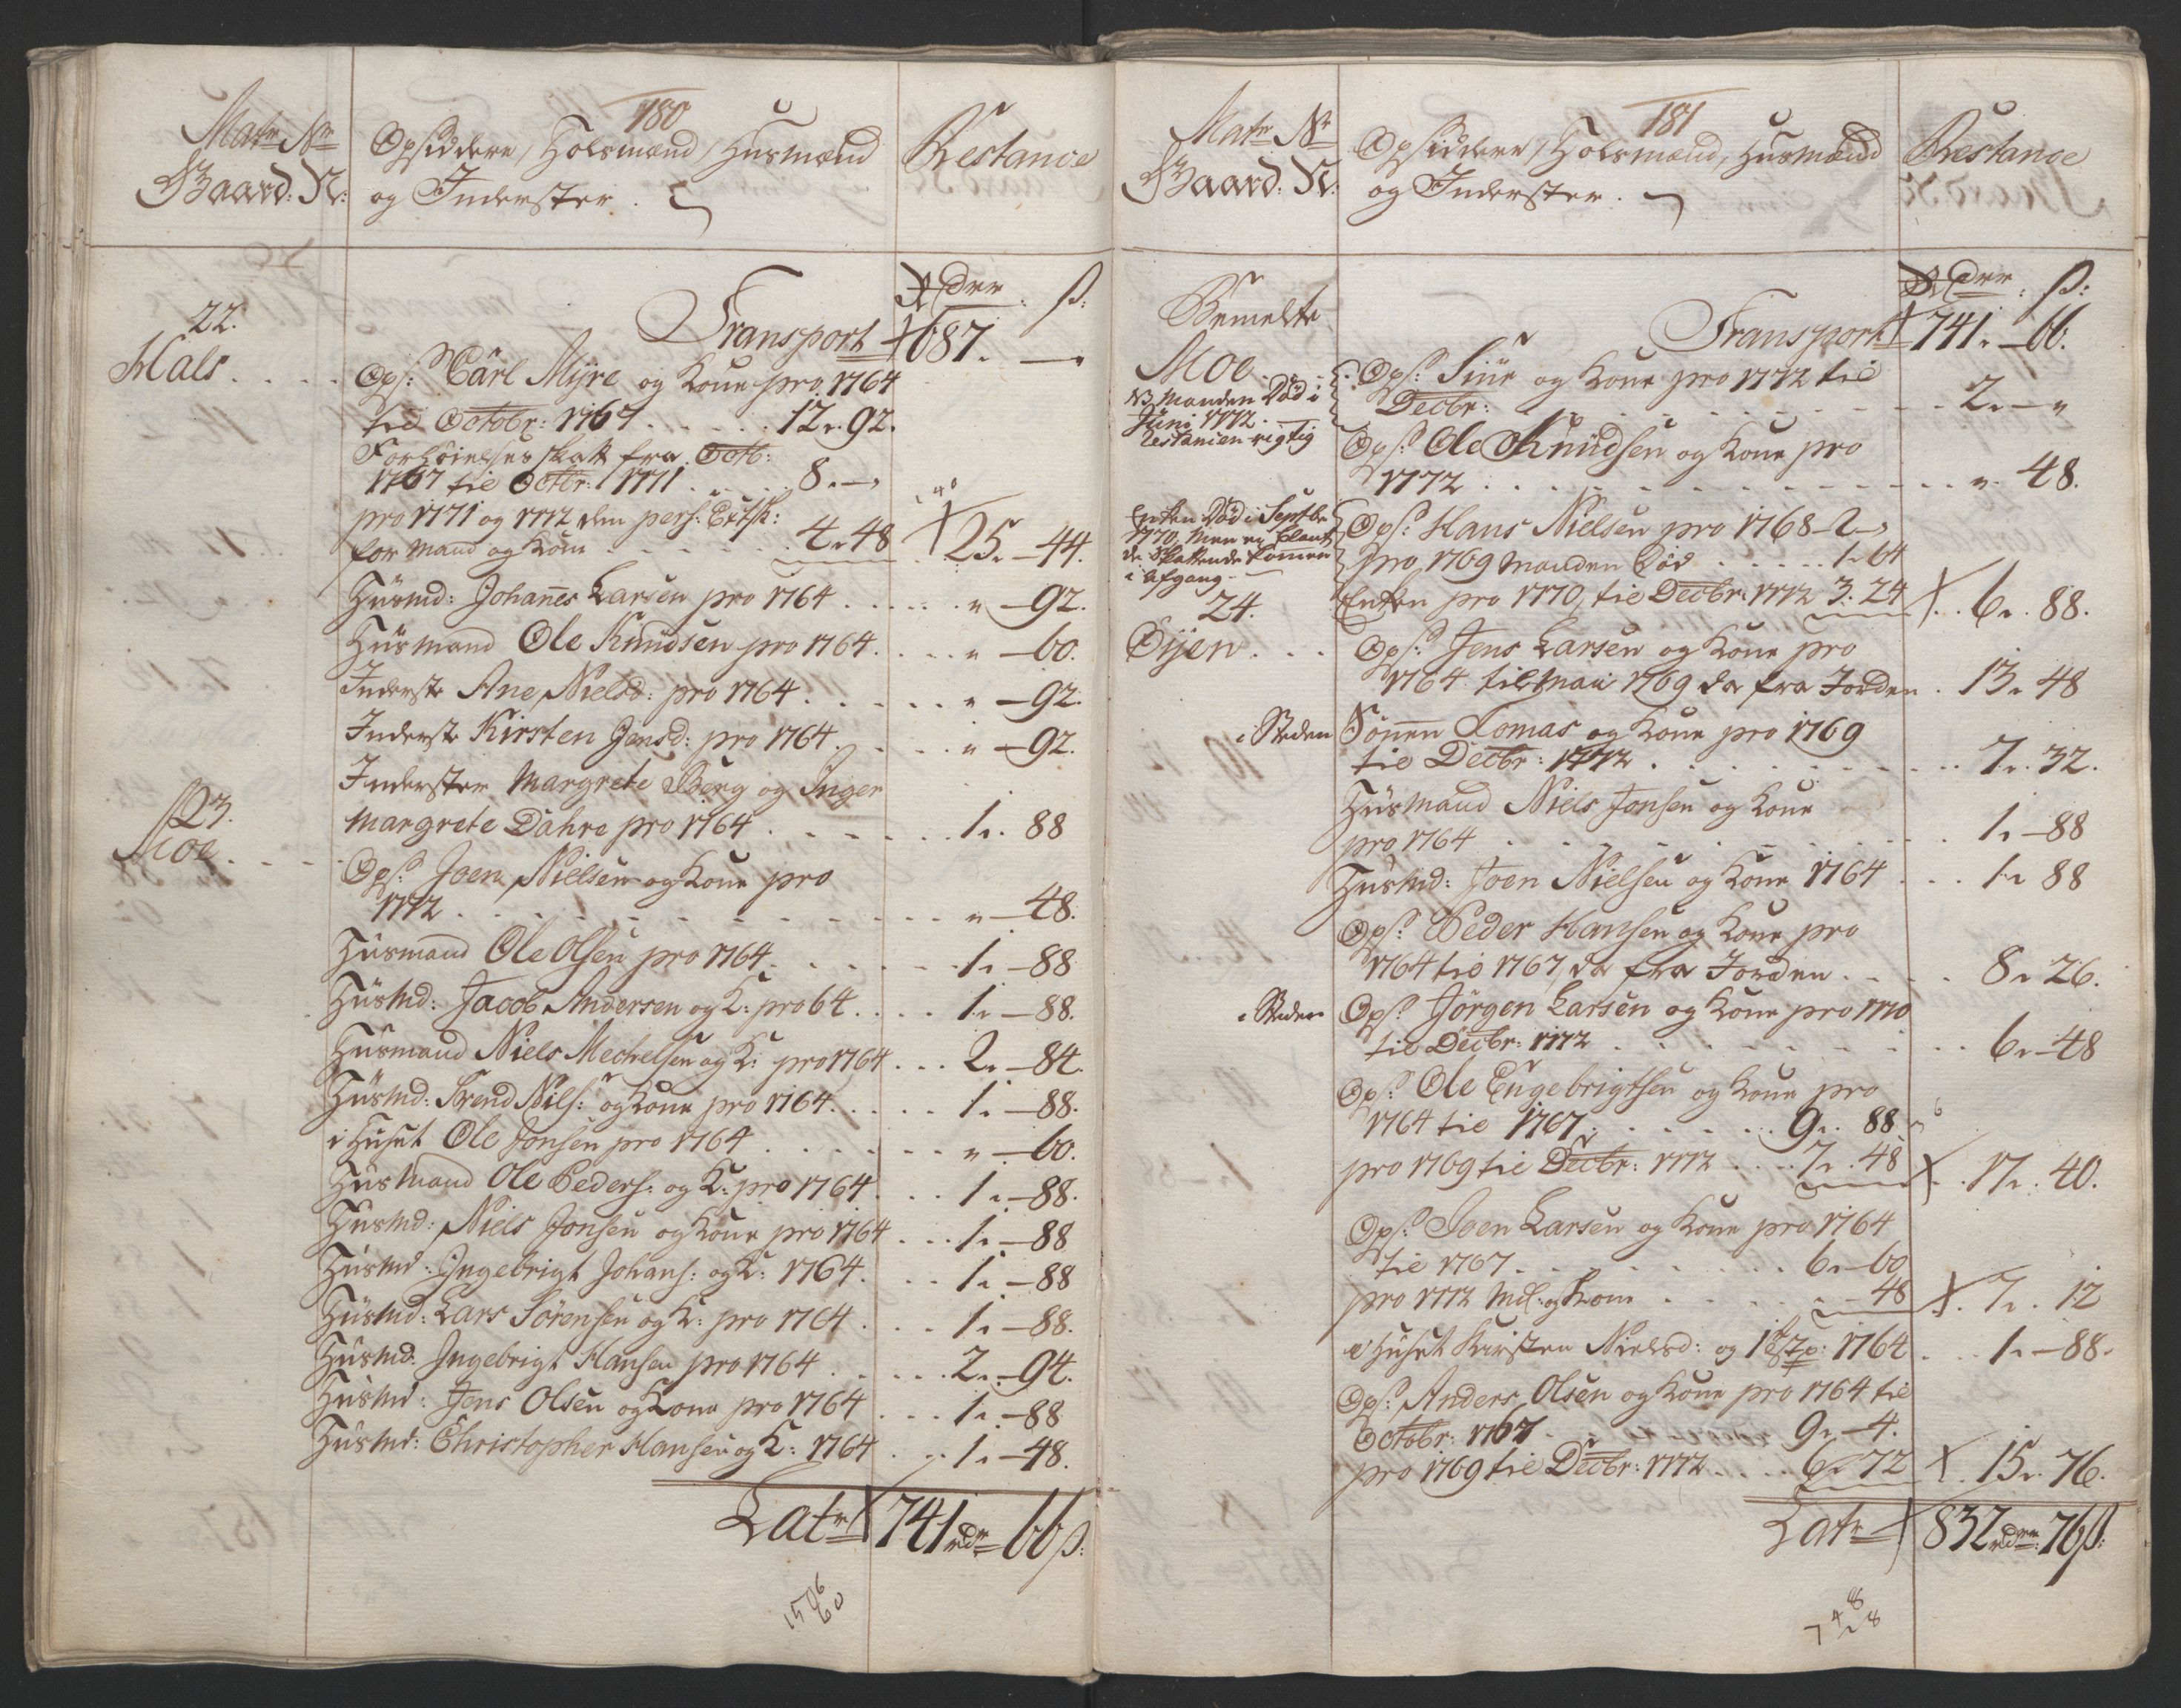 180
Matr Nr
Gaard: N:
Opsiddere, Holsmænd, Husmænd
og Inderster.
Restance
Rdrr. ß:
Transport 687. —
22.
Hals . . . .
Ops: Carl Myre og Kone pro 1764
til Octobr: 1767 . . . . . 12. 92.
Forhøielses skatt fra Octb:
1767 til Octbr: 1771 . . . . 8. —
pro 1771 og 1772 den pers: Extsk:
for Mand og Kone . . . . . 4. 48 25. — 44.
Huusmd: Johanes Larsen pro 1764 . . . . . " — 92.
Huusmand Ole Knudsen pro 1764 . . . . " — 60.
Inderste Ane Nielsd: pro 1764 . . . . . " — 92.
Inderste Kirsten Jensd: pro 1764 . . . . " — 92.
Inderster Margrete Berg og Inger
Margrete Dahre pro 1764 . . . . . . 1. 88
23.
Moe . . . .
Ops: Joen Nielsen og Kone pro
1772 . . . . . . . . . . . " — 48.
Huusmand Ole Olsen pro 1764 . . . . . . 1. — 88
Huusmd: Jacob Andersen og K: pro 64 . . . . 1. — 88.
Huusmand Niels Mechelsen og K: pro 1764 . . . 2. — 84.
Huusmd: Svend Nils: og Kone pro 1764 . . . . . 1. — 88.
i Huset Ole Jonsen pro 1764 . . . . . . " — 60.
Huusmand Ole Peders: og K: pro 1764 . . . 1. — 88.
Huusmd: Niels Jonsen og Kone pro 1764 . . . 1. — 88
Huusmd: Ingebrigt Johans: og K: 1764 . . . 1. — 88
Huusmd: Lars Sörensen og K: pro 1764 . . . 1. — 88.
Huusmd: Ingebrigt Hansen pro 1764 . . . . . 2. — 94.
Huusmd: Jens Olsen og Kone pro 1764 . . . 1. — 88
Huusmd: Christopher Hansen og K: 1764 . . . 1. — 48.
Latr 741 rdr — 66 ß:
181
Matr Nr
Gaard: N:
Opsiddere, Holsmænd, Husmænd
og Inderster.
Restance
Rdrr. ß:
Transport 741. — 66.
Bemelte
Moe . . .
NB Manden Död i
Juni 1772.
Restancen rigtig
Ops: Siur og Kone pro 1772 til
Decbr: . . . . . . . . . . 2. — "
Ops: Ole Knudsen og Kone pro
1772 . . . . . . . . . . . " 48.
Enken Död i Septbr
1770, Men
de Skattende komen
i afgang
Ops: Hans Nielsen pro 1768 — 2 —
pro 1769 Manden Död . . . . . 1. 64
Enken pro 1770, til Decbr: 1772 3. 24 6. 88.
24.
Öyen . . .
Ops: Jens Larsen og Kone pro
1764 til Mai 1769 da fra Jorden . 13. 48
i Steden Sönen Tomas og Kone pro 1769
til Decbr: 1772 . . . . . . . . 7. 32.
Huusmand Niels Jonsen og Kone
pro 1764 . . . . . . . . . . 1. — 88
Huusmd: Joen Nielsen og Kone 1764 . . . 1. 88
Ops: Peder Hansen og Kone pro
1764 til 1767, da fra Jorden . . . . 8. 26.
i Steden Ops: Jörgen Larsen og Kone pro 1770
til Decbr: 1772 . . . . . . . . 6. — 48
Ops: Ole Engebrigtsen og Kone pro
1764 til 1767 . . . . . . 9. 88
pro 1769 til Decbr: 1772 . . . . 7. 48 17. 40.
Ops: Joen Larsen og Kone pro 1764
til 1767 . . . . . . . . 6. — 60
pro 1772 Md: og Kone . . . . . — 48 7. 12
i Huset Kirsten Nielsd: og 1764 . . . 1. — 88.
Ops: Anders Olsen og Kone pro 1764 til
Octobr: 1767 . . . . . . . 9. — 4.
pro 1769 til Decbr: 1772 . . . . 6. 72 15. 76.
Latr 832 rdrr: 76 ß: